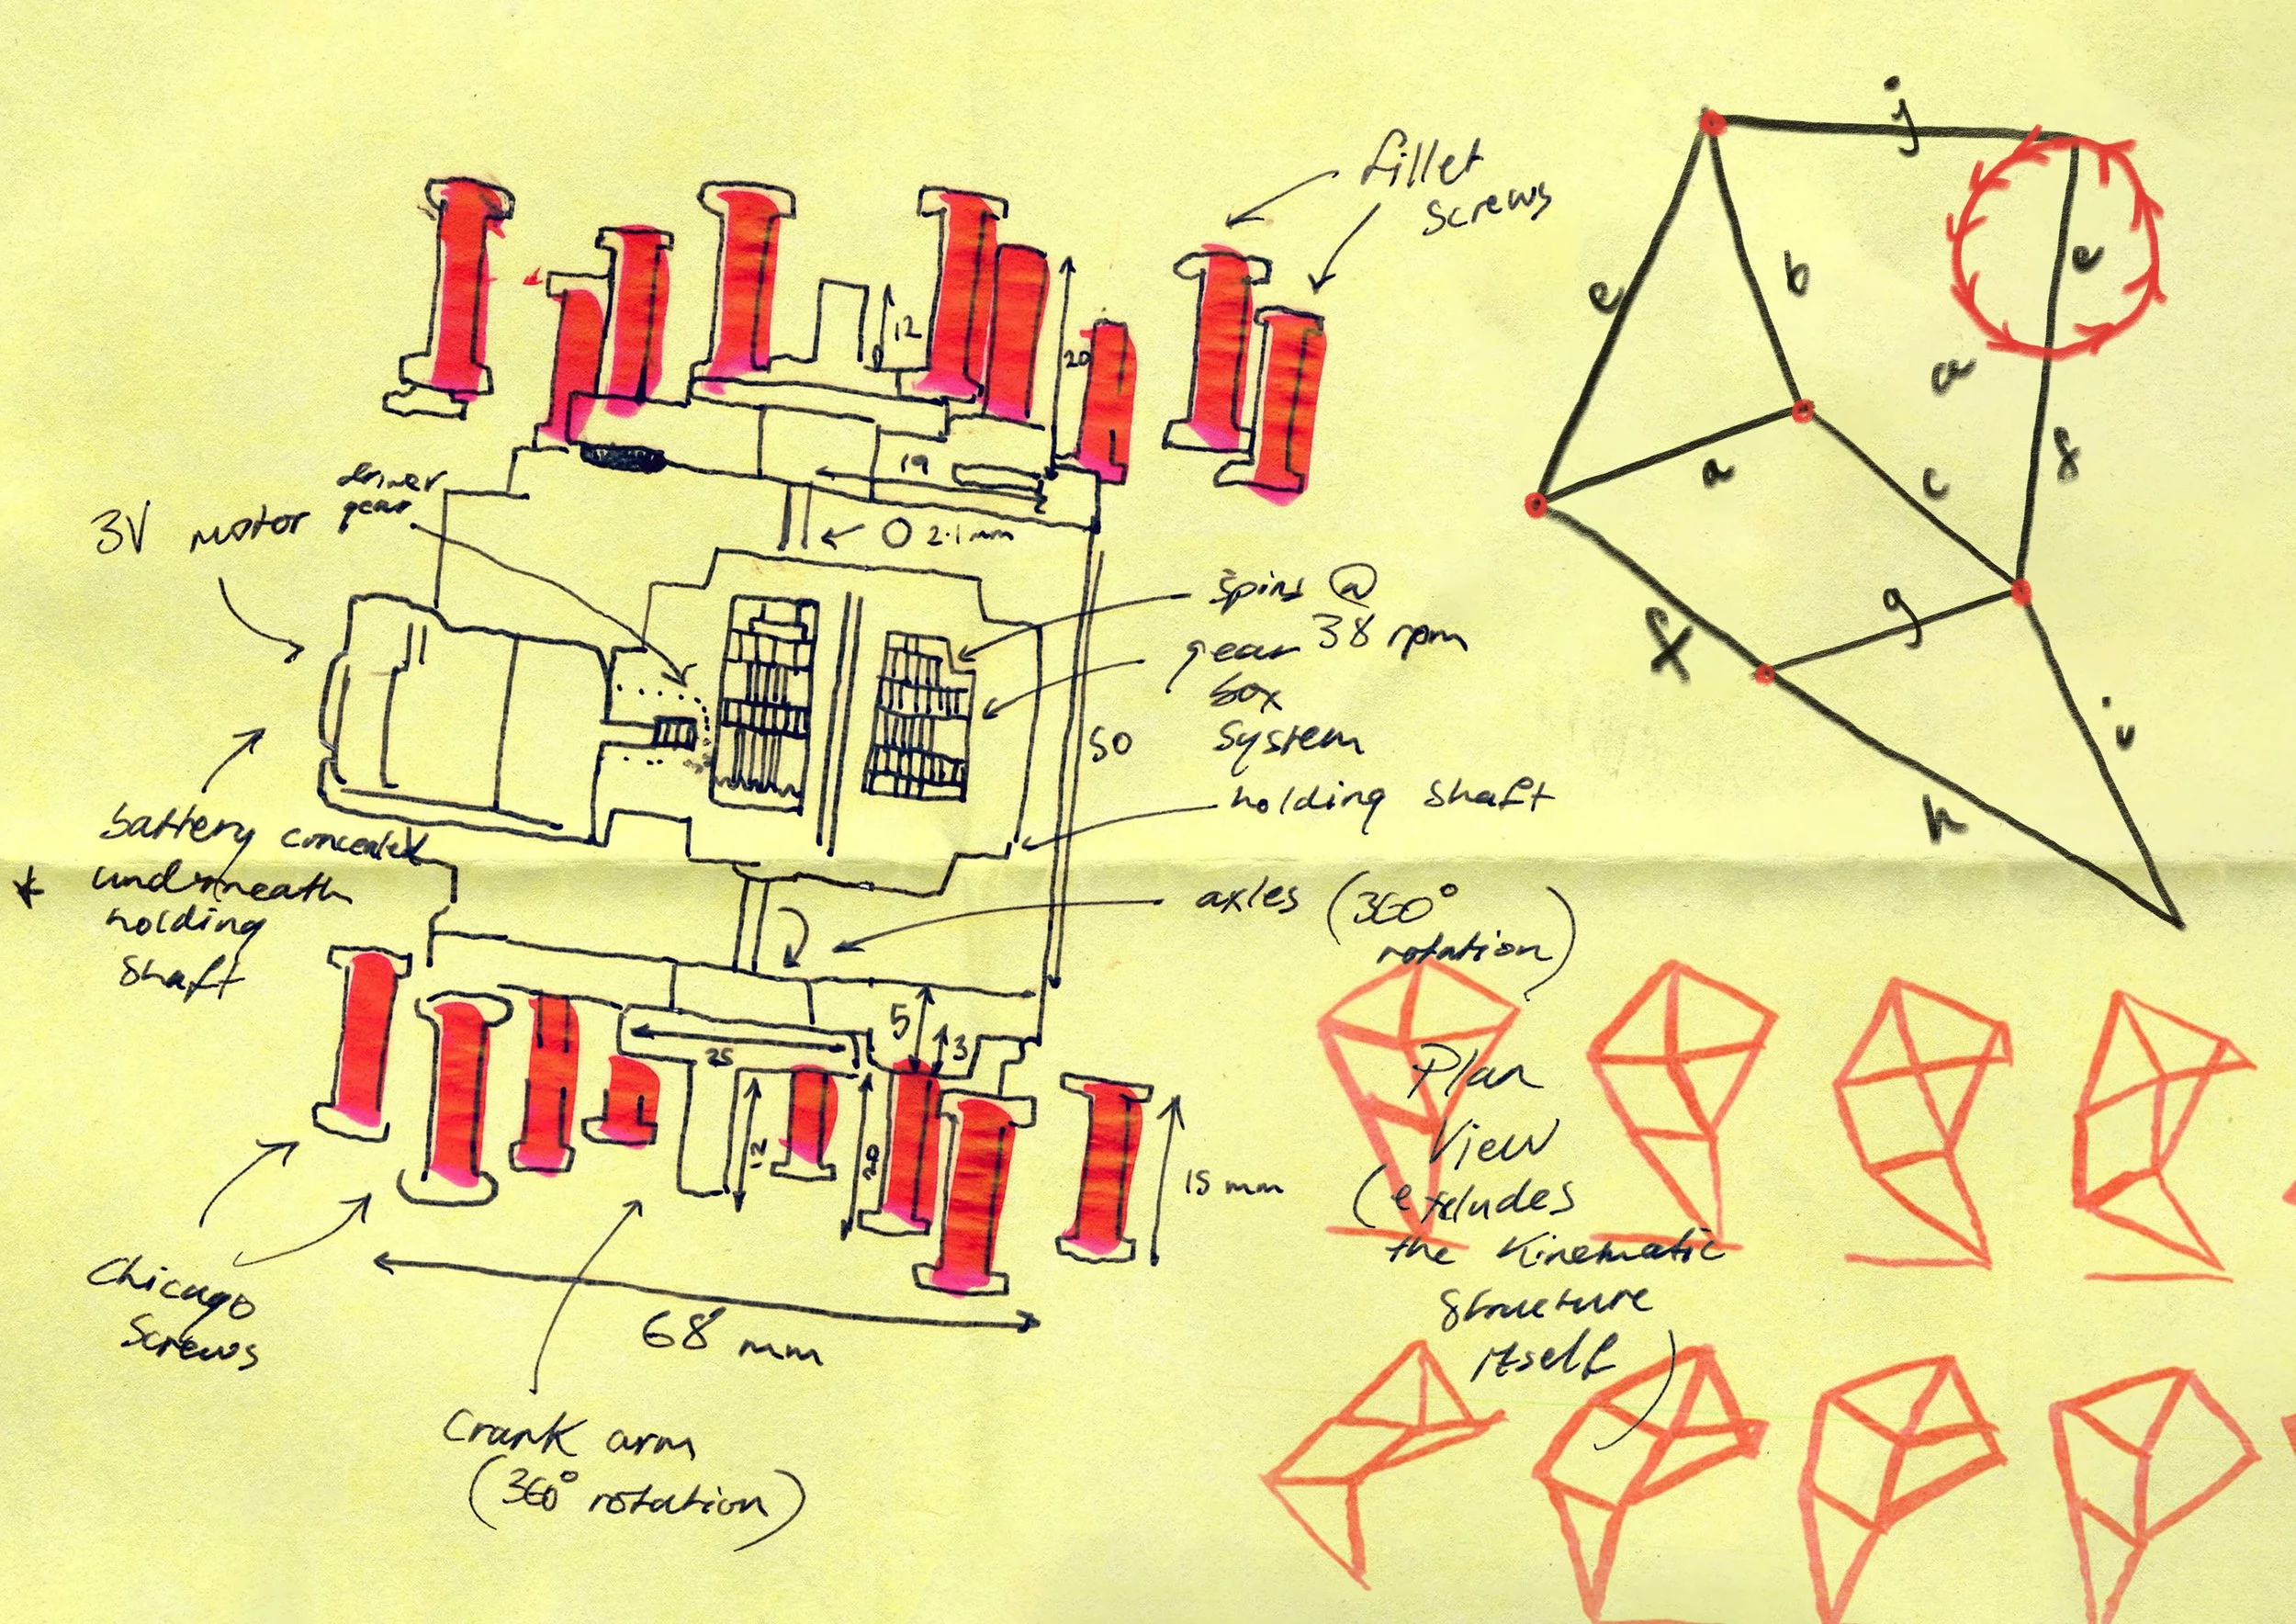 fillet
screws
12
20
19
2
3V motor
driver
gear
O 2.1mm
spins @
38 rpm
gear
box
system
50
holding shaft
battery concealed
* underneath
holding
shaft
axles (360°
rotation)
5
3
25
12
20
15 mm
Chicago
Screws
68 mm
Crank arm
(360° rotation)
j
e
b
e
a
a
c
f
f
g
i
h
Plan
View
(excludes
the kinematic
structure
itself)